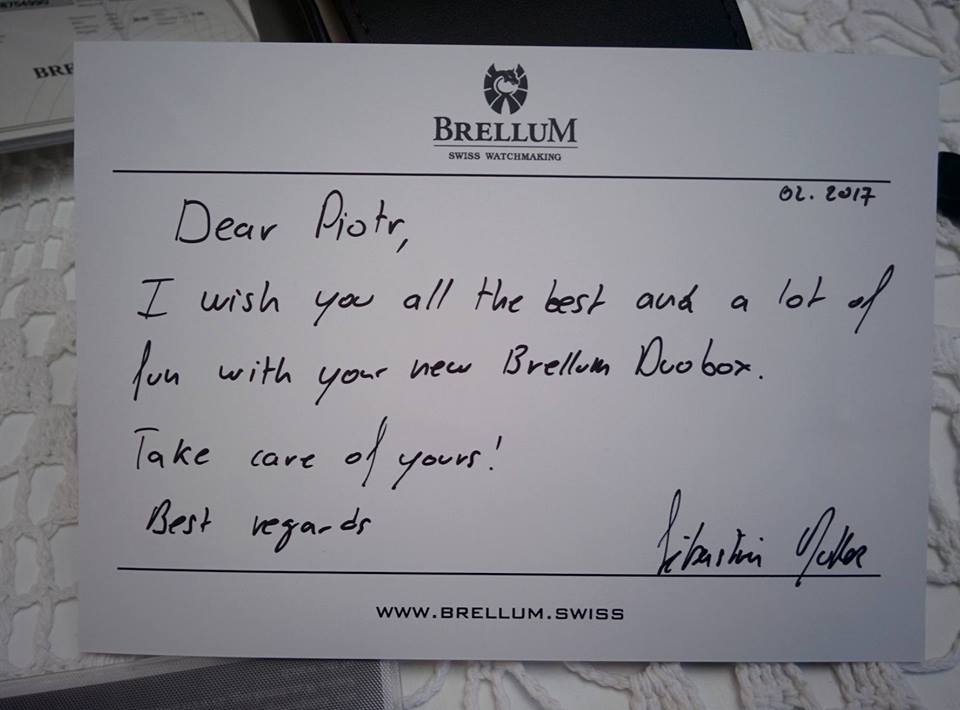 BRE
BRELLUM
SWISS WATCHMAKING
02. 2017
Dear Piotr,
I wish you all the best and a lot of
fun with your new Brellum Duobox.
Take care of yours!
Best regards
WWW.BRELLUM.SWISS